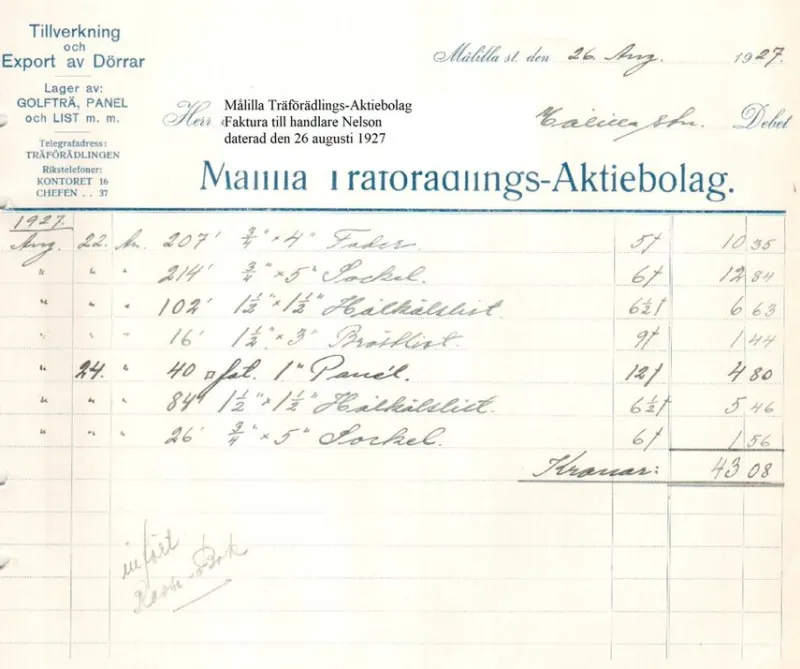 Tillverkning
och
Export av Dörrar
Lager av:
GOLFTRÄ, PANEL
och LIST m. m.
Telegrafadress:
TRÄFÖRÄDLINGEN
Rikstelefoner:
KONTORET 16
CHEFEN . . 37
Målilla st. den 26 Aug. 1927.
Herr
Målilla Träförädlings-Aktiebolag
Faktura till handlare Nelson
daterad den 26 augusti 1927
Målilla stn. Debet
Målilla Träförädlings-Aktiebolag.
1927.
Aug. 22. An. 207' 3/4" × 4" Foder. 5† 10 35
" " " 214' 3/4" × 5" Sockel. 6† 12 84
" " " 102' 1 1/2" × 1 1/2" Hålkälslist. 6 1/2† 6 63
" " " 16' 1 1/2" × 3" Bröstlist. 9† 1 44
" 24. " 40 □ fot. 1" Panel. 12† 4 80
" " " 84' 1 1/2" × 1 1/2" Hålkälslist. 6 1/2† 5 46
" " " 26' 3/4" × 5" Sockel. 6† 1 56
Kronor: 43 08
infört
Kassa-Bok